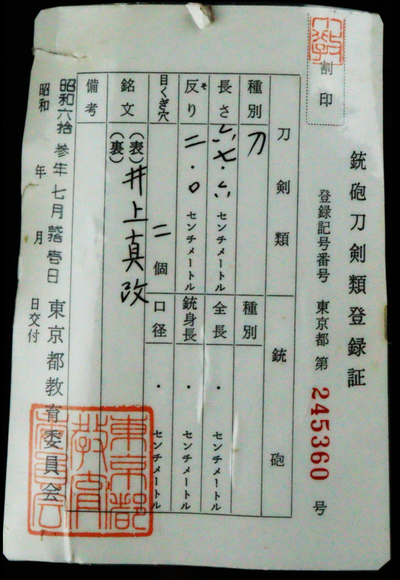 割印
銃砲刀剣類登録証
登録記号番号 東京都 第 245360 号
刀剣類 銃砲
種別 刀 種別
長さ 六七・六 センチメートル 全長 ・ センチメートル
反り そ 二・〇 センチメートル 銃身長 ・ センチメートル
目くぎ穴 二 個 口径 ・ センチメートル
銘文 (表) 井上真改
(裏)
備考
昭和六拾参年七月拾壱日
昭和 年 月 日交付
東京都教育委員会
東京都教育委員会